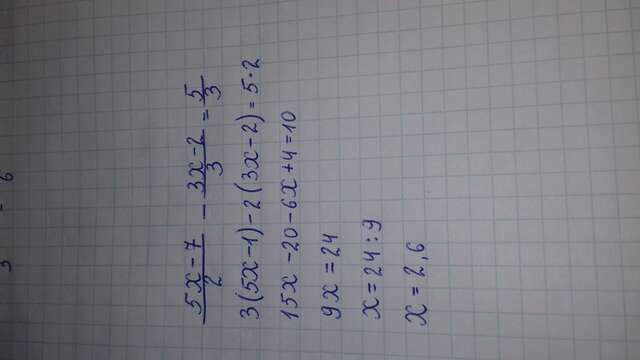 3 - 6
(5x-7)/2 - (3x-2)/3 = 5/3
3(5x-1)-2(3x-2)=5·2
15x-20-6x+4=10
9x=24
x=24:9
x=2,6